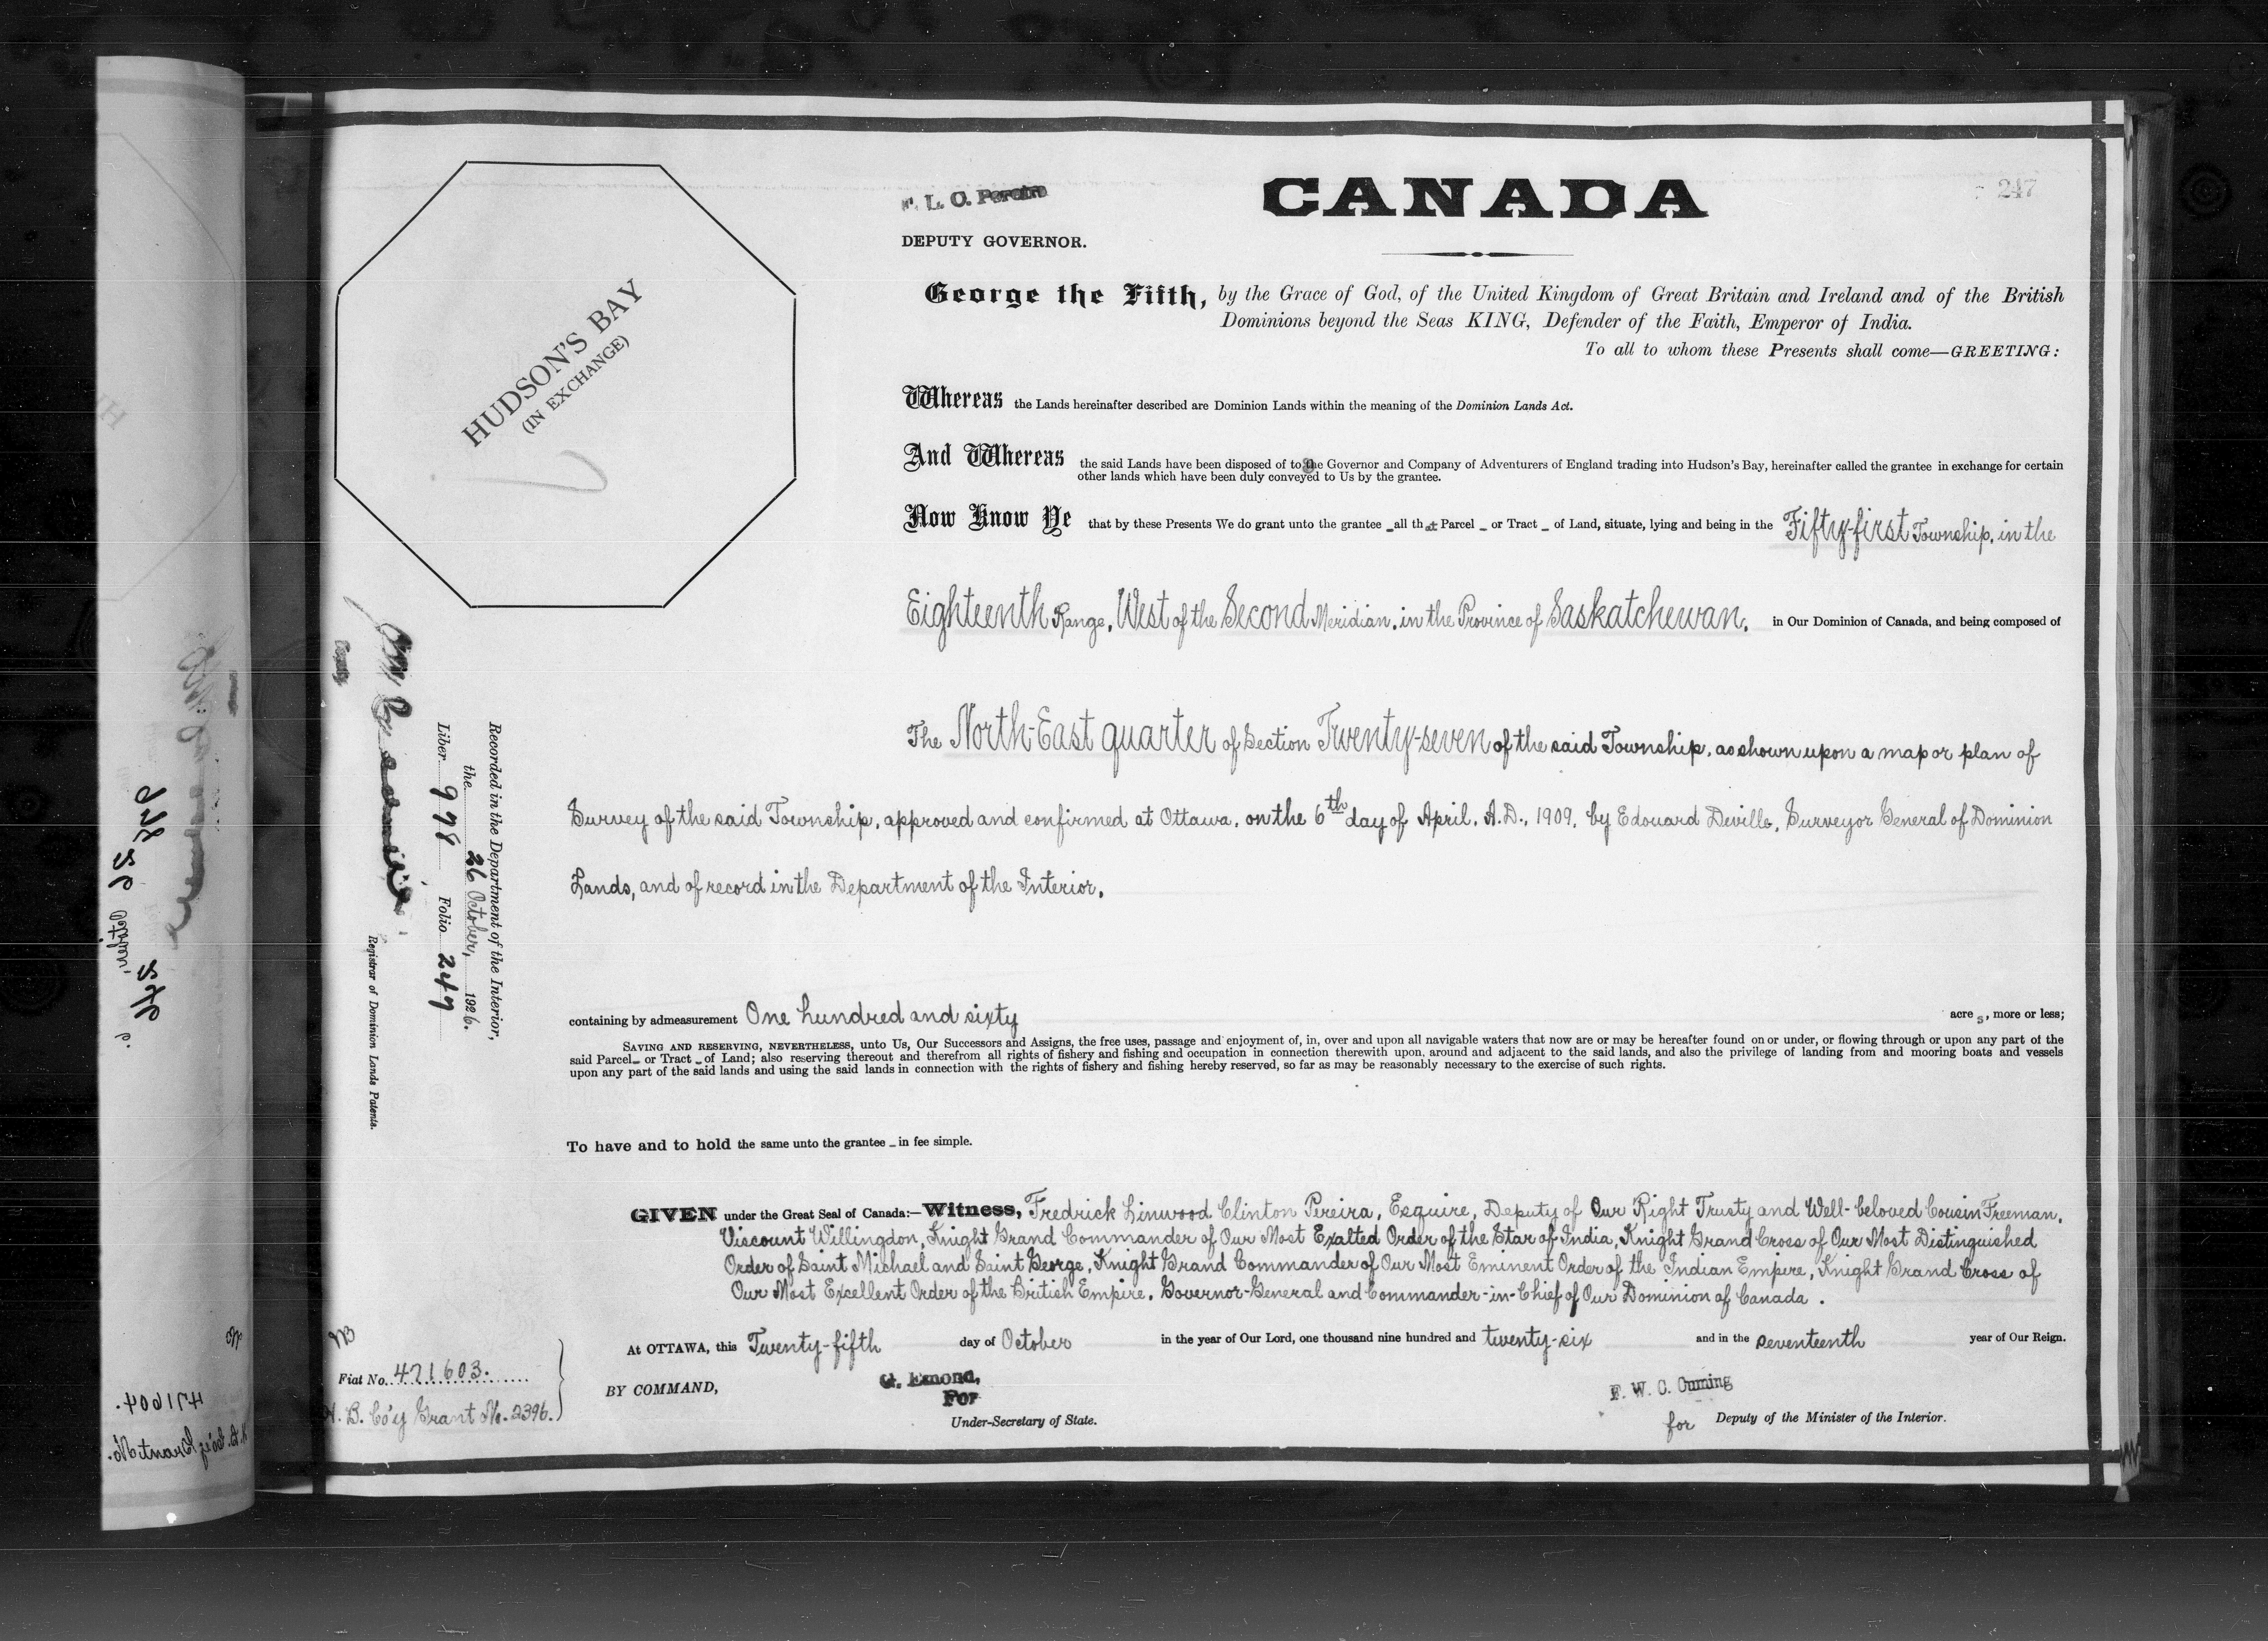 F. L. C. Pereira
DEPUTY GOVERNOR.
CANADA
247
HUDSON'S BAY
(IN EXCHANGE)
George the Fifth, by the Grace of God, of the United Kingdom of Great Britain and Ireland and of the British
Dominions beyond the Seas KING, Defender of the Faith, Emperor of India.
To all to whom these Presents shall come—GREETING:
Whereas the Lands hereinafter described are Dominion Lands within the meaning of the Dominion Lands Act.
And Whereas the said Lands have been disposed of to the Governor and Company of Adventurers of England trading into Hudson's Bay, hereinafter called the grantee in exchange for certain
other lands which have been duly conveyed to Us by the grantee.
Now Know Ye that by these Presents We do grant unto the grantee _ all that Parcel _ or Tract _ of Land, situate, lying and being in the Fifty-first Township, in the
Eighteenth Range, West of the Second Meridian, in the Province of Saskatchewan, in Our Dominion of Canada, and being composed of
The North-East quarter of Section Twenty-seven of the said Township, as shown upon a map or plan of
Survey of the said Township, approved and confirmed at Ottawa, on the 6th day of April, A.D., 1909, by Edouard Deville, Surveyor General of Dominion
Lands, and of record in the Department of the Interior.
containing by admeasurement One hundred and sixty acres, more or less;
SAVING AND RESERVING, NEVERTHELESS, unto Us, Our Successors and Assigns, the free uses, passage and enjoyment of, in, over and upon all navigable waters that now are or may be hereafter found on or under, or flowing through or upon any part of the
said Parcel _ or Tract _ of Land; also reserving thereout and therefrom all rights of fishery and fishing and occupation in connection therewith upon, around and adjacent to the said lands, and also the privilege of landing from and mooring boats and vessels
upon any part of the said lands and using the said lands in connection with the rights of fishery and fishing hereby reserved, so far as may be reasonably necessary to the exercise of such rights.
To have and to hold the same unto the grantee _ in fee simple.
GIVEN under the Great Seal of Canada:— Witness, Fredrick Linwood Clinton Pereira, Esquire, Deputy of Our Right Trusty and Well-beloved Cousin Freeman,
Viscount Willingdon, Knight Grand Commander of Our Most Exalted Order of the Star of India, Knight Grand Cross of Our Most Distinguished
Order of Saint Michael and Saint George, Knight Grand Commander of Our Most Eminent Order of the Indian Empire, Knight Grand Cross of
Our Most Excellent Order of the British Empire, Governor-General and Commander-in-Chief of Our Dominion of Canada.
At OTTAWA, this Twenty-fifth day of October in the year of Our Lord, one thousand nine hundred and twenty-six and in the seventeenth year of Our Reign.
BY COMMAND,
G. Emond,
For
Under-Secretary of State.
F. W. C. Cuming
for Deputy of the Minister of the Interior.
Recorded in the Department of the Interior,
the 26 October, 1926.
Liber 978 Folio 247
Deputy
Registrar of Dominion Lands Patents.
Fiat No. 471603.
H. B. Co'y Grant No. 2396.
471604.
H. B. Co'y Grant No.